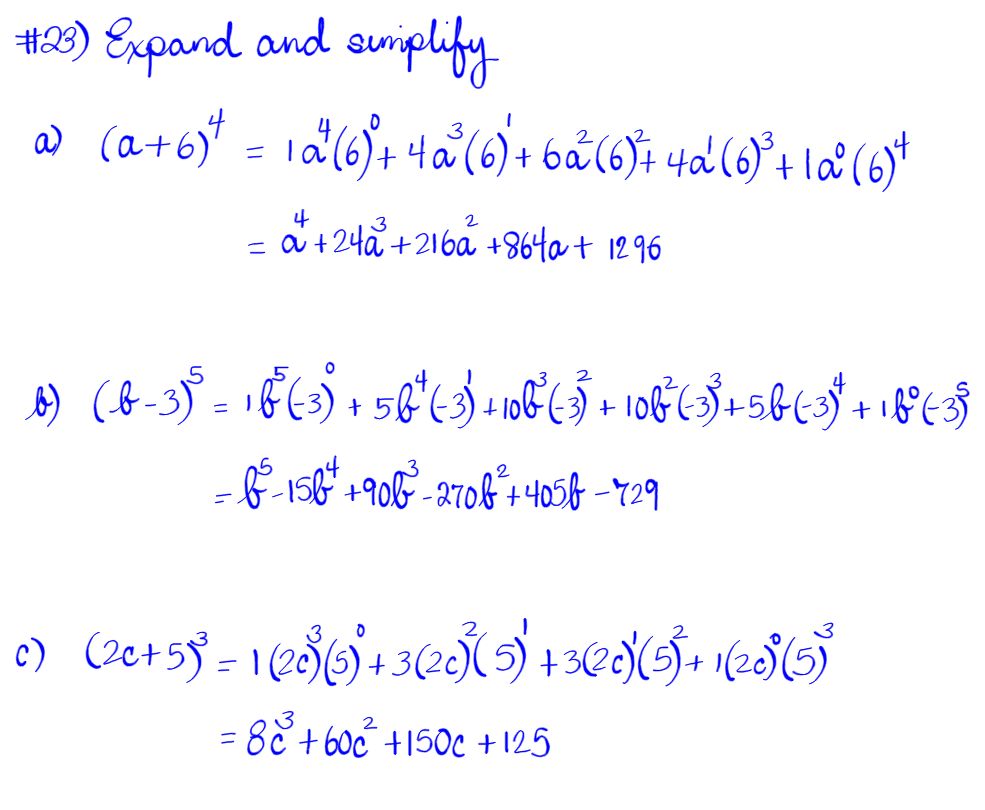 #23) Expand and simplify
a) (a+6)⁴ = 1a⁴(6)⁰ + 4a³(6)¹ + 6a²(6)² + 4a¹(6)³ + 1a⁰(6)⁴
= a⁴ + 24a³ + 216a² + 864a + 1296
b) (b-3)⁵ = 1b⁵(-3)⁰ + 5b⁴(-3)¹ + 10b³(-3)² + 10b²(-3)³ + 5b(-3)⁴ + 1b⁰(-3)⁵
= b⁵ - 15b⁴ + 90b³ - 270b² + 405b - 729
c) (2c+5)³ = 1(2c)³(5)⁰ + 3(2c)²(5)¹ + 3(2c)¹(5)² + 1(2c)⁰(5)³
= 8c³ + 60c² + 150c + 125